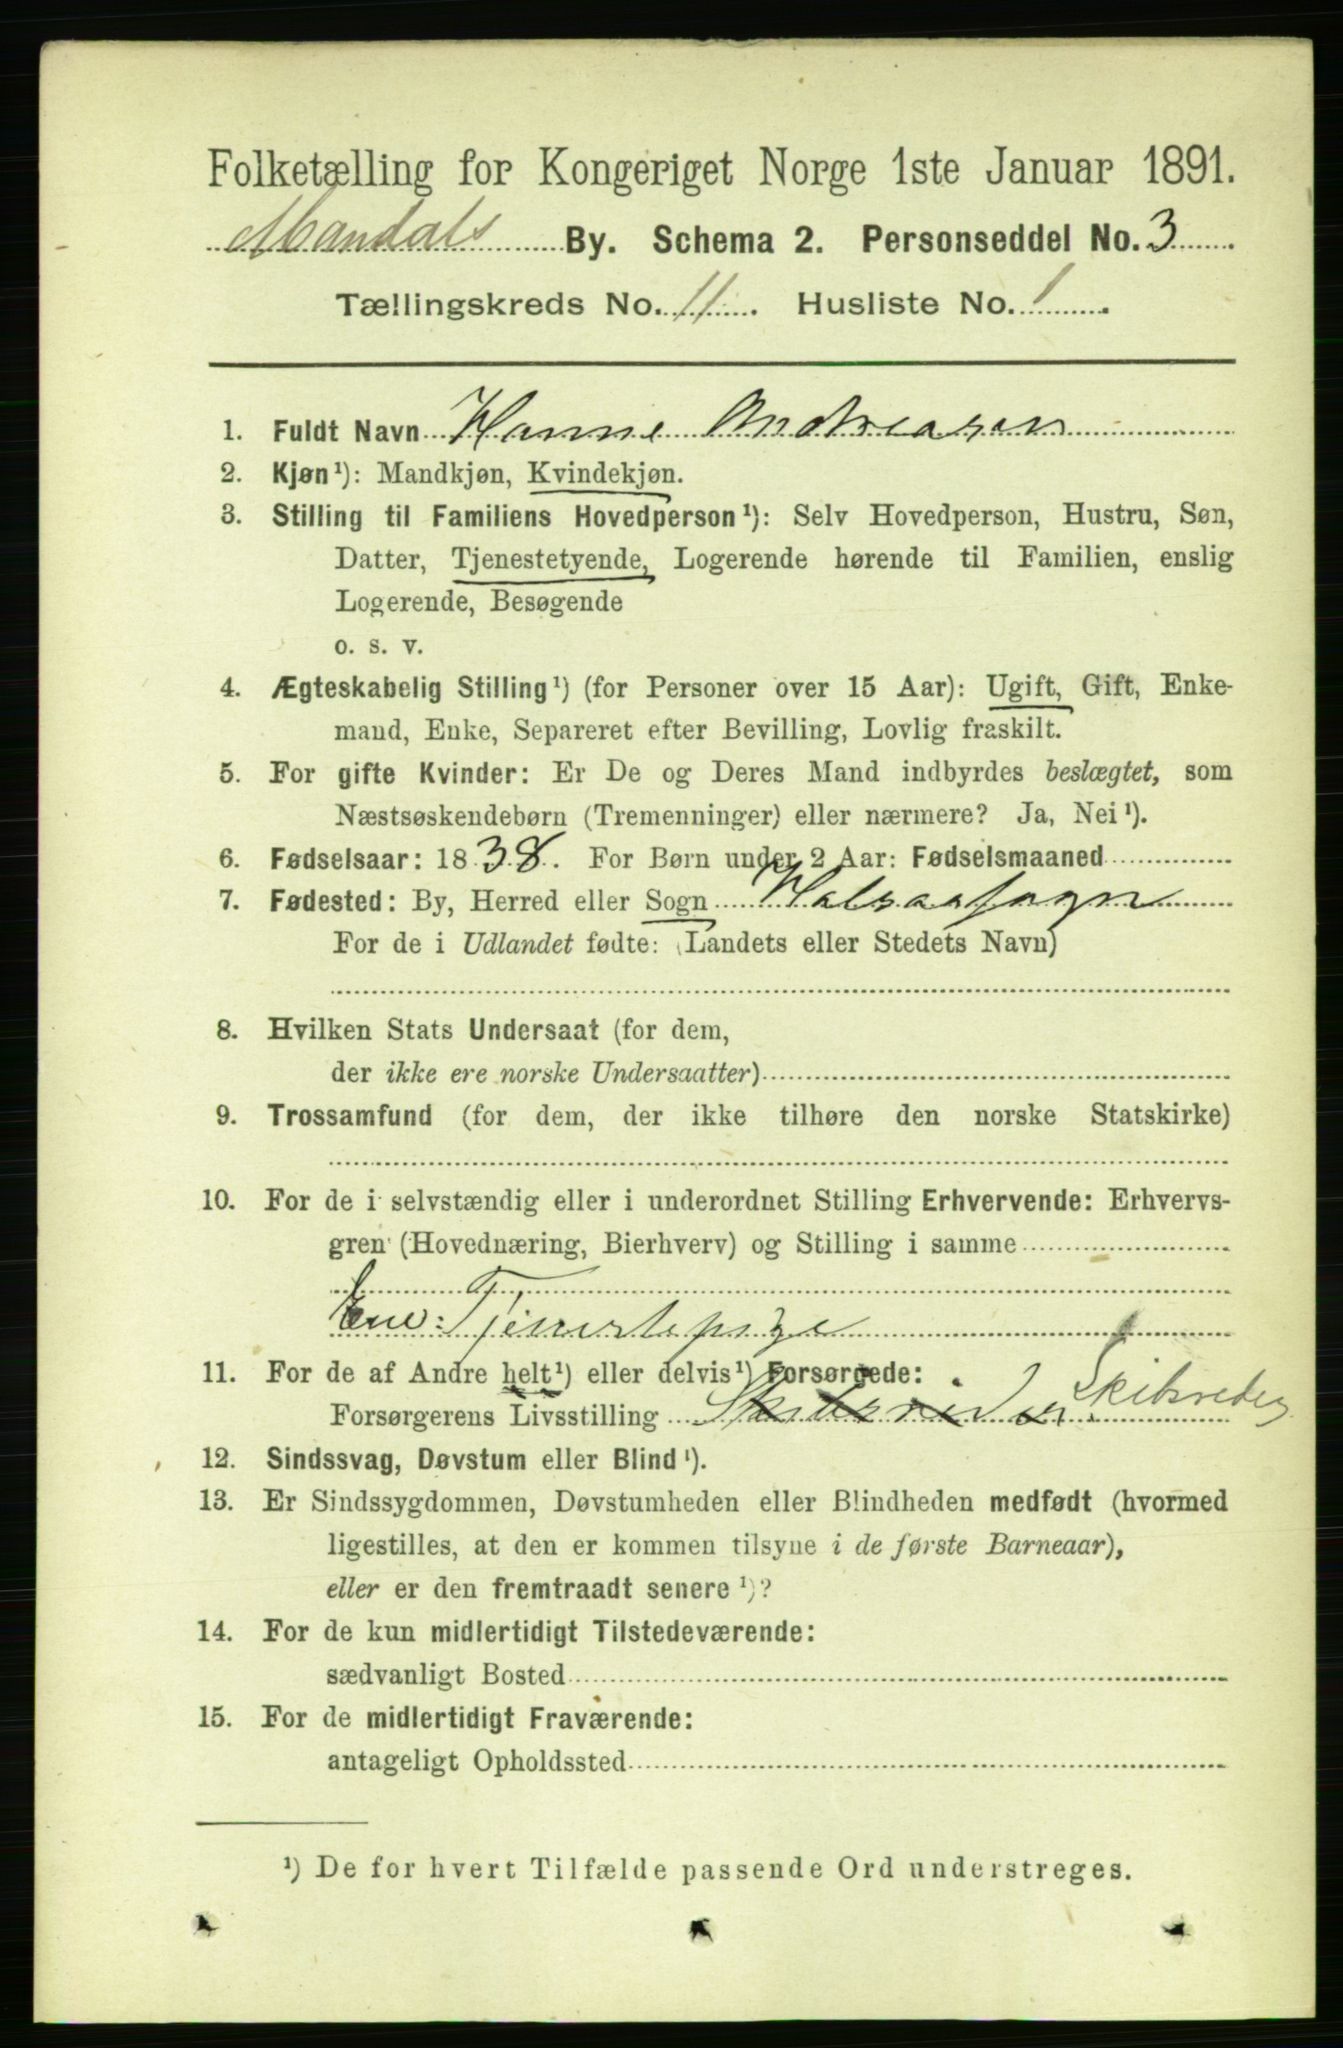 Folketælling for Kongeriget Norge 1ste Januar 1891.
Mandals By. Schema 2. Personseddel No. 3
Tællingskreds No. 11. Husliste No. 1.
1. Fuldt Navn Hanne Andreasen
2. Kjøn¹): Mandkjøn, Kvindekjøn.
3. Stilling til Familiens Hovedperson¹): Selv Hovedperson, Hustru, Søn,
Datter, Tjenestetyende, Logerende hørende til Familien, enslig
Logerende, Besøgende
o. s. v.
4. Ægteskabelig Stilling¹) (for Personer over 15 Aar): Ugift, Gift, Enke-
mand, Enke, Separeret efter Bevilling, Lovlig fraskilt.
5. For gifte Kvinder: Er De og Deres Mand indbyrdes beslægtet, som
Næstsøskendebørn (Tremenninger) eller nærmere? Ja, Nei¹).
6. Fødselsaar: 1838. For Børn under 2 Aar: Fødselsmaaned
7. Fødested: By, Herred eller Sogn Halsaasogn
For de i Udlandet fødte: (Landets eller Stedets Navn)
8. Hvilken Stats Undersaat (for dem,
der ikke ere norske Undersaatter)
9. Trossamfund (for dem, der ikke tilhøre den norske Statskirke)
10. For de i selvstændig eller i underordnet Stilling Erhvervende: Erhvervs-
gren (Hovednæring, Bierhverv) og Stilling i samme
Ene: Tjenestepige
11. For de af Andre helt¹) eller delvis¹) Forsørgede:
Forsørgerens Livsstilling Skibsreder Skibsreder
12. Sindssvag, Døvstum eller Blind¹).
13. Er Sindssygdommen, Døvstumheden eller Blindheden medfødt (hvormed
ligestilles, at den er kommen tilsyne i de første Barneaar),
eller er den fremtraadt senere¹)?
14. For de kun midlertidigt Tilstedeværende:
sædvanligt Bosted
15. For de midlertidigt Fraværende:
antageligt Opholdssted
¹) De for hvert Tilfælde passende Ord understreges.